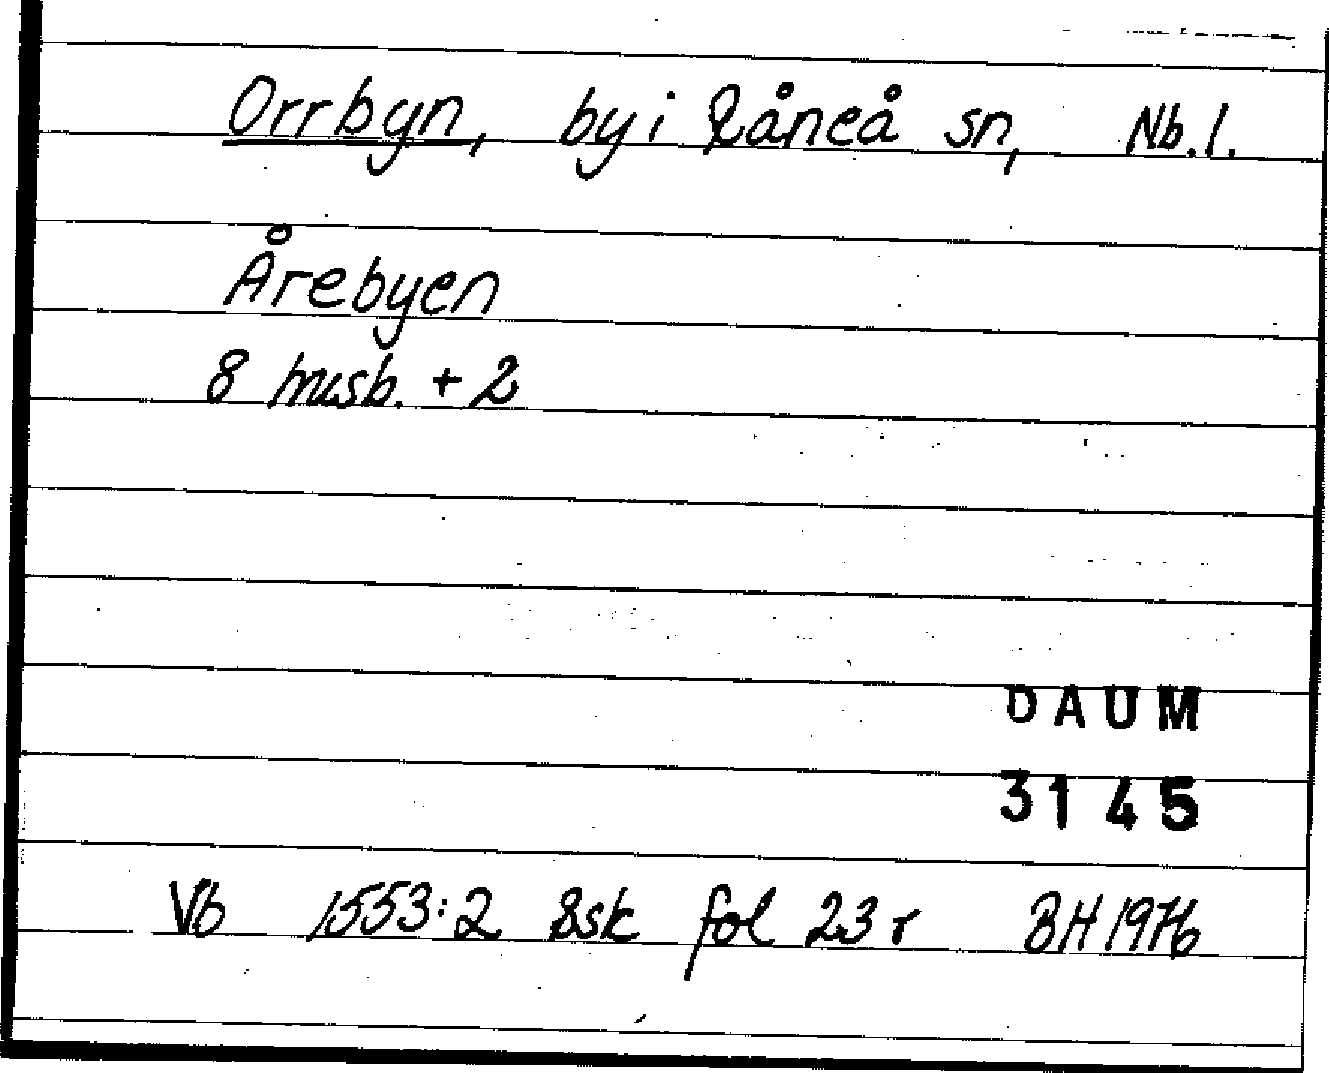 Orrbyn, by i Råneå sn, Nb.l.
Årebyen
8 husb. + 2
DAUM
3145
Vb 1553:2 Bsk fol 23 r BH 1976